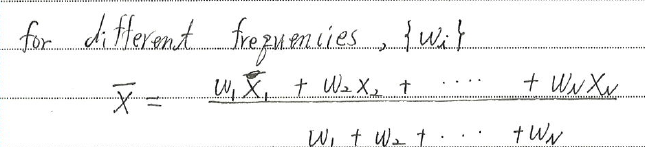 for different frequencies, {wi}
X̄ = (w₁X̄₁ + w₂X₂ + ···· + wNXN) / (w₁ + w₂ + ··· + wN)